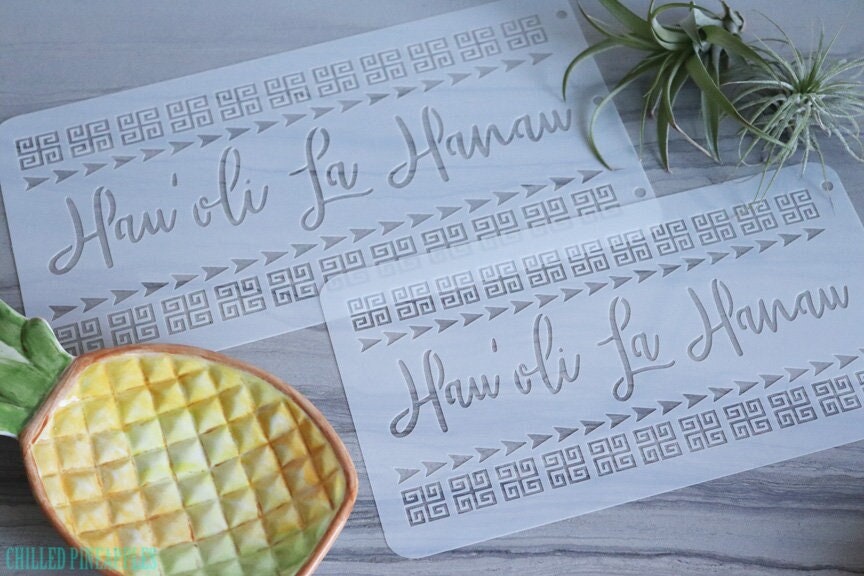 Hau'oli La Hanau
Hau'oli La Hanau
CHILLED PINEAPPLES